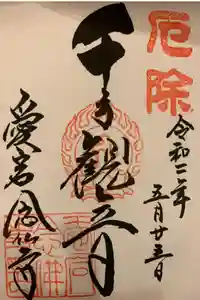 厄除
令和二年
五月廿三日
千手觀音
愛宕念仏寺